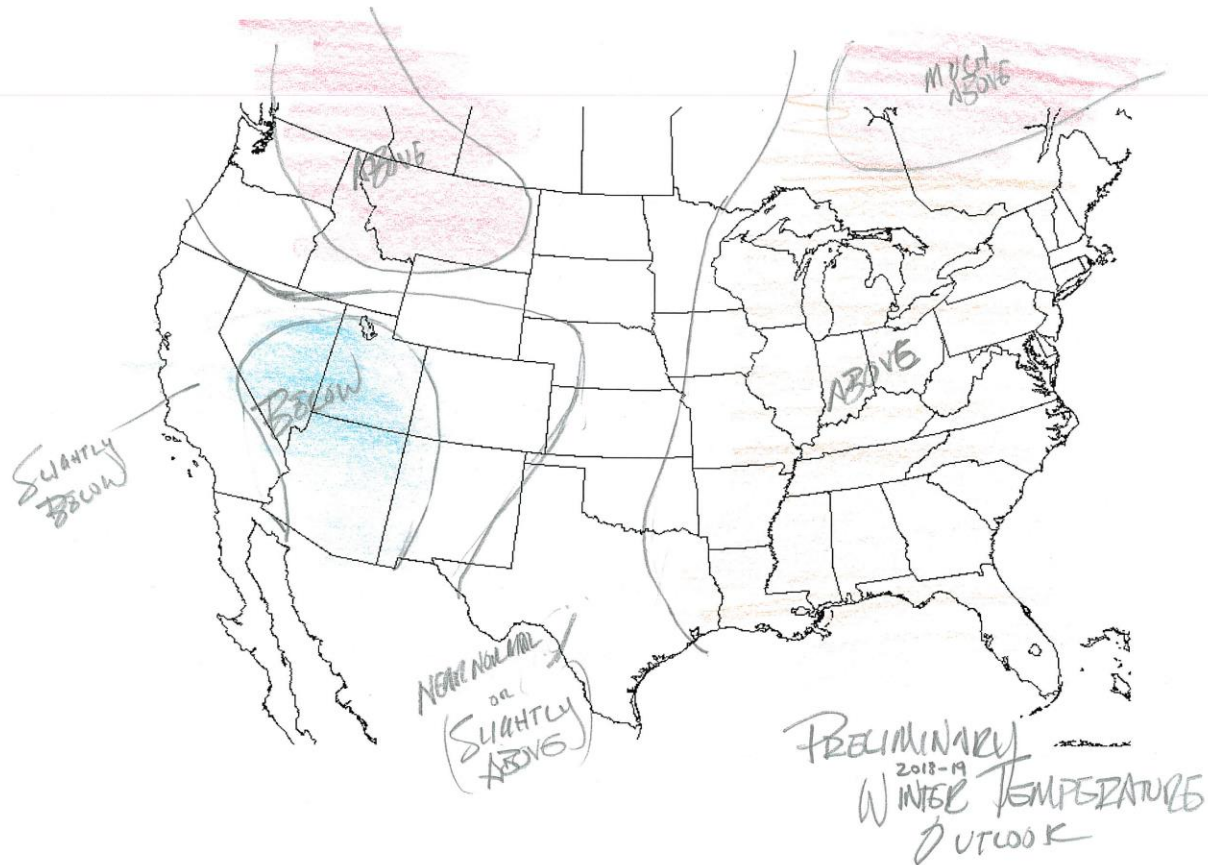 MUCH
ABOVE
ABOVE
BELOW
ABOVE
SLIGHTLY
BELOW
NEAR NORMAL
OR
(SLIGHTLY
ABOVE)
PRELIMINARY
2018-19
WINTER TEMPERATURE
OUTLOOK